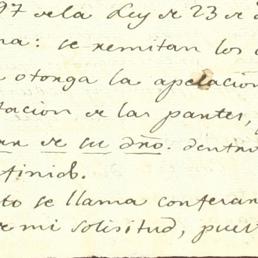 97 de la Ley de 23 de
na: se remitan los
otorga la apelacion
tacion de las partes,
de su dño. dentro
finido.
to se llama conferan
e mi solisitud, puer